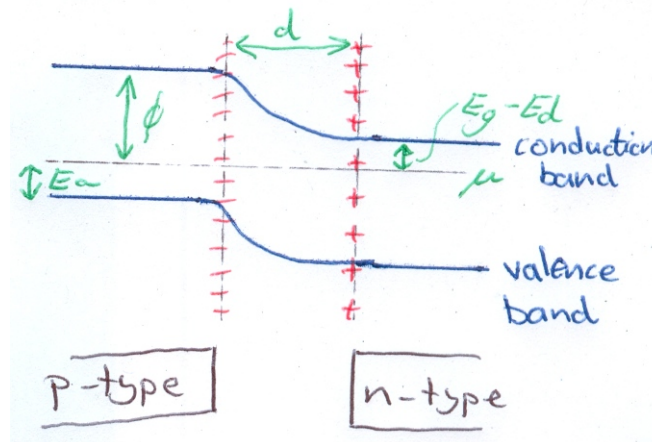 d
ϕ
Eg-Ed
conduction
band
Ea
μ
valence
band
p-type
n-type